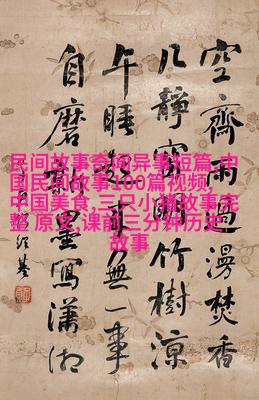 空齋雨過漫焚香
几靜窗明竹樹涼
午睡來無一事
自磨墨寫瀟湘
民间故事奇闻异事短篇,中
国民间故事100篇视频,
中国美食,三只小猪故事完
整 原文,课前三分钟历史
故事